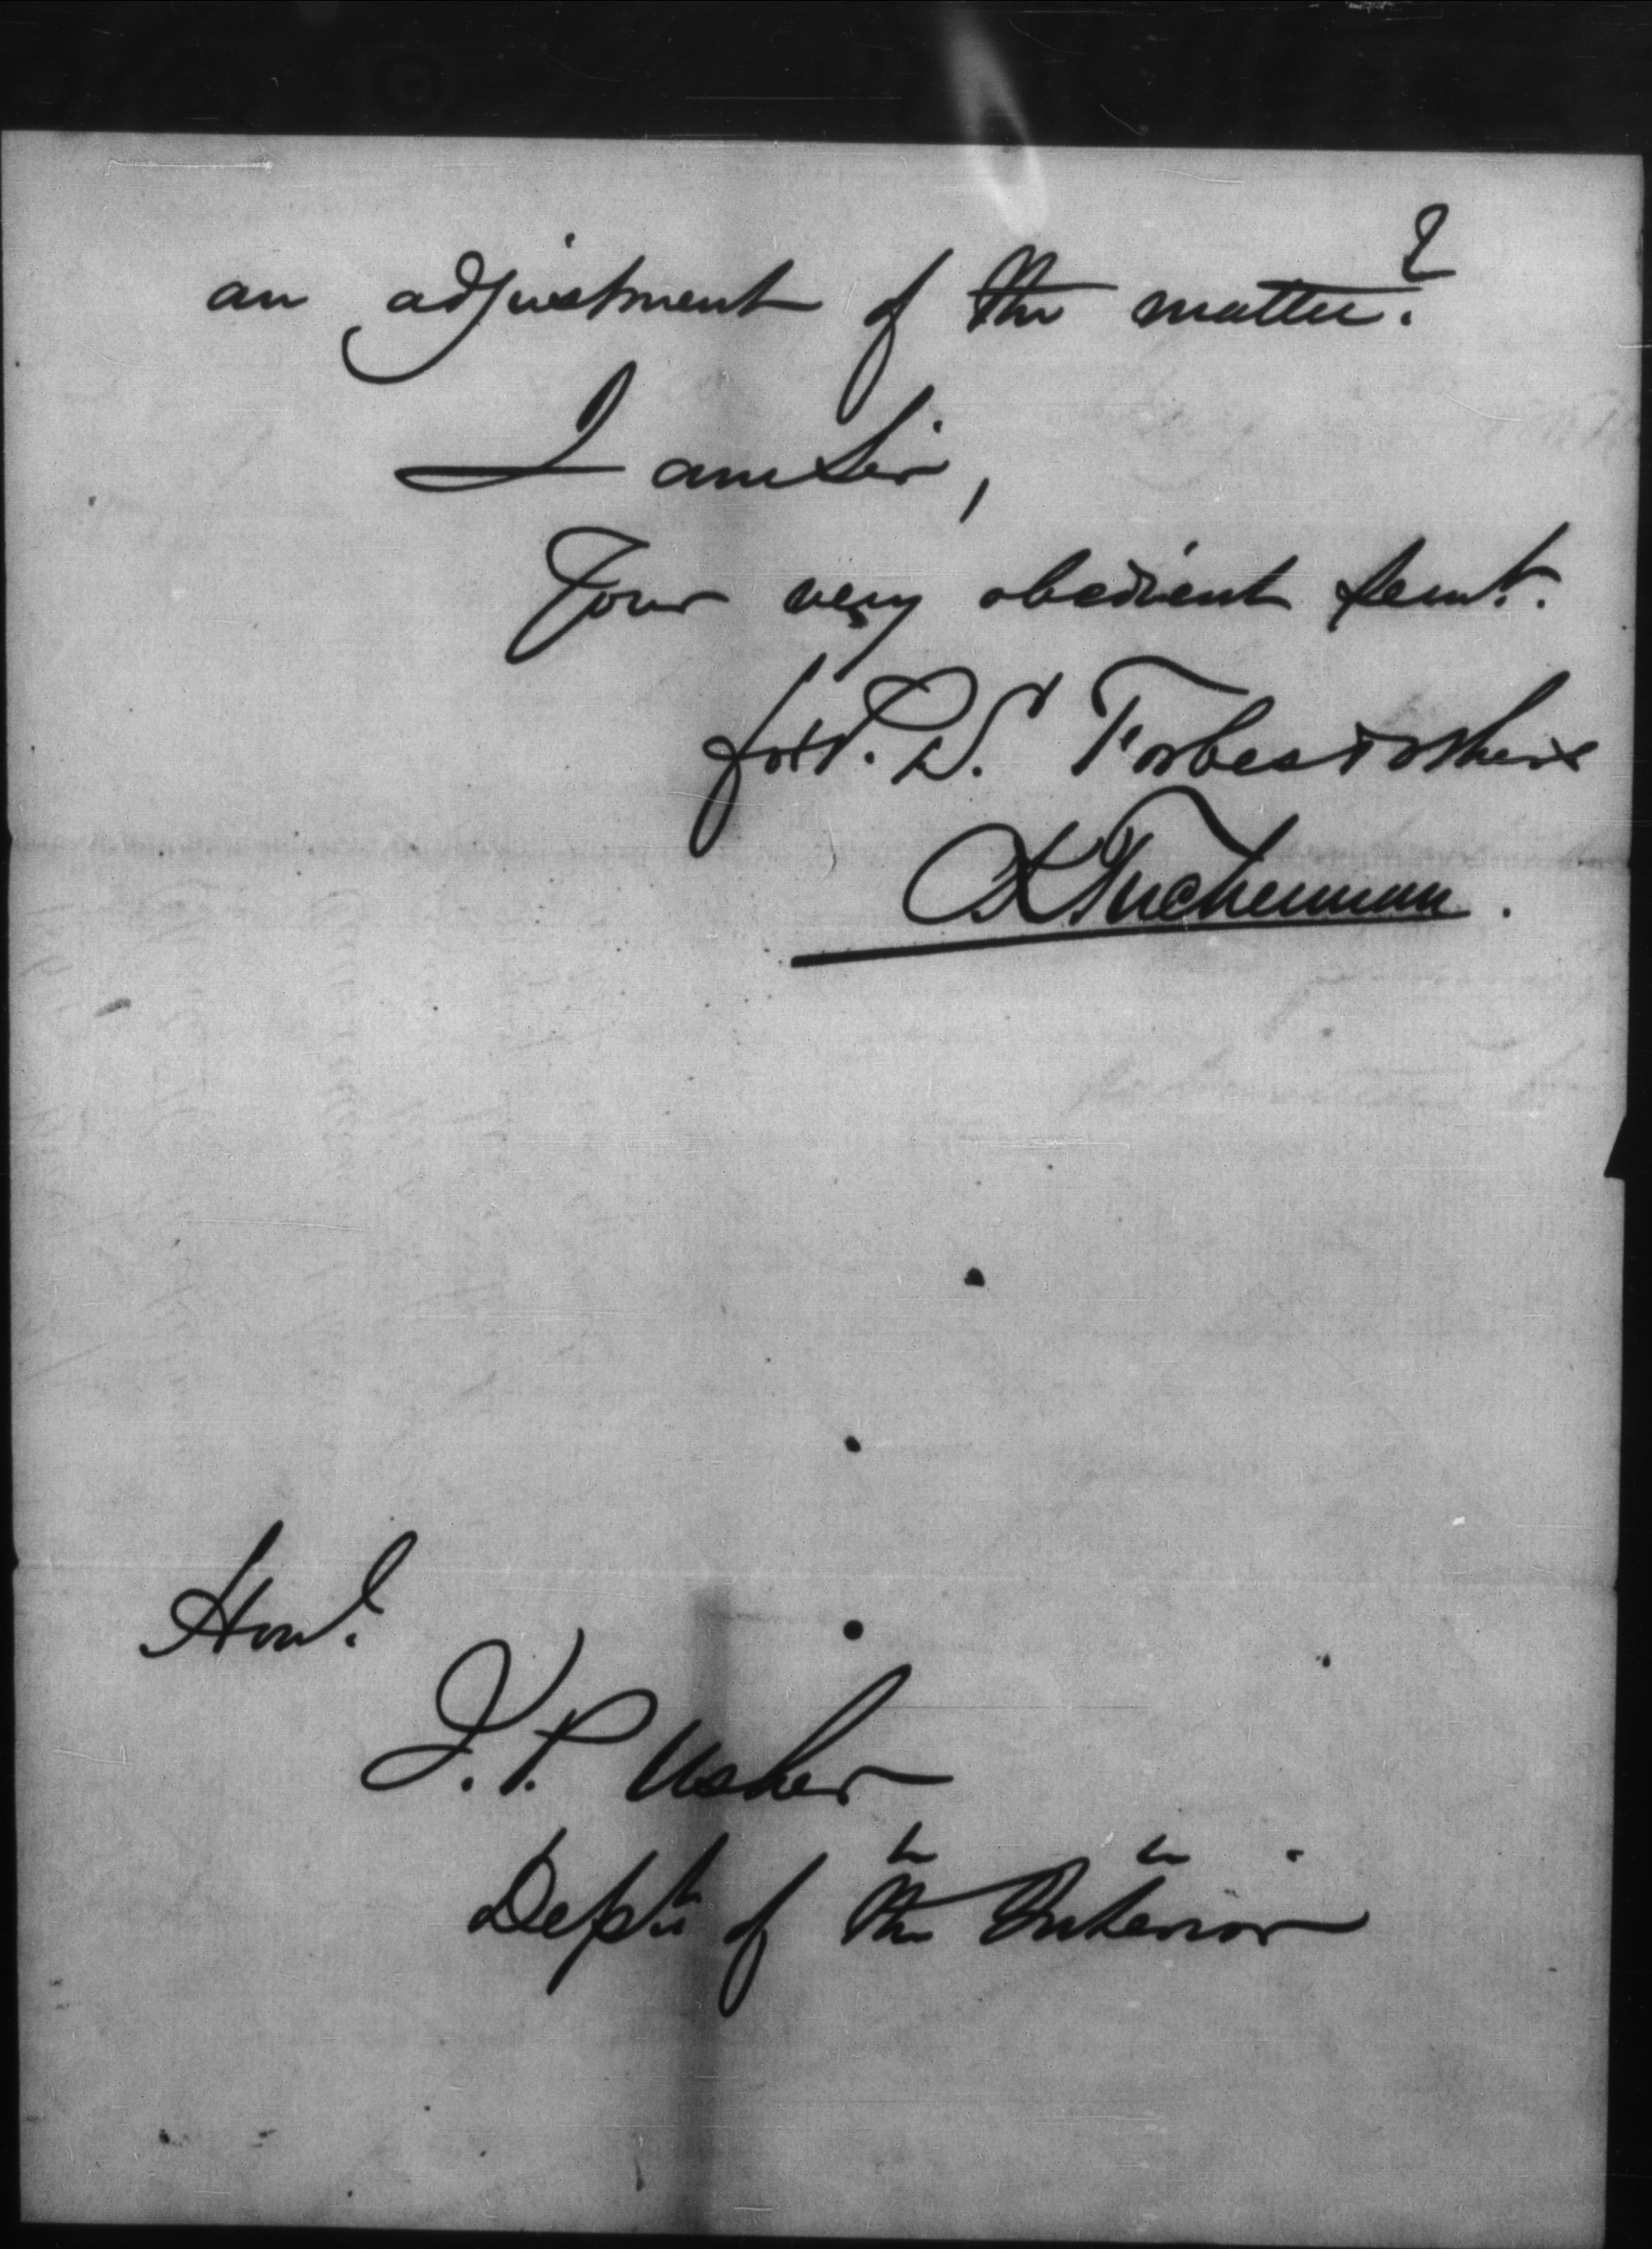 an adjustment of the matter?
I am Sir,
Your very obedient Servt.
for P. S. Forbes & others
C K Tuckerman.
Honl.
J. P. Usher
Dept. of the Interior